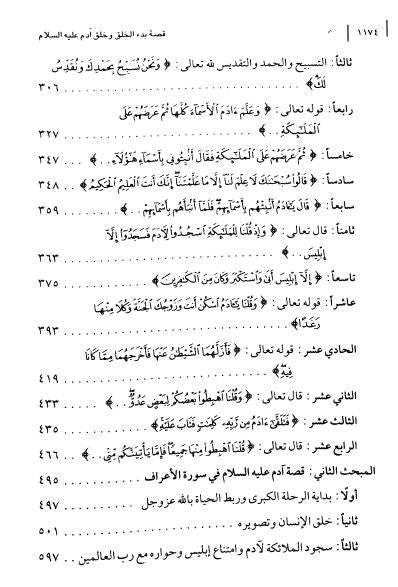 ١١٧٤ قصة بدء الخلق وخلق آدم عليه السلام
ثالثاً : التسبيح والحمد والتقديس لله تعالى : ﴿ وَنَحْنُ نُسَبِّحُ بِحَمْدِكَ وَنُقَدِّسُ
لَكَ ﴾ . . . . . . . . . . ٣٠٦
رابعاً : قوله تعالى : ﴿ وَعَلَّمَ ءَادَمَ الْأَسْمَاءَ كُلَّهَا ثُمَّ عَرَضَهُمْ عَلَى
الْمَلَائِكَةِ . . ﴾ . . . . . . . . . . ٣٢٧
خامساً : ﴿ ثُمَّ عَرَضَهُمْ عَلَى الْمَلَائِكَةِ فَقَالَ أَنْبِئُونِي بِأَسْمَاءِ هَؤُلَاءِ . . ﴾ . . ٣٤٧
سادساً : ﴿ قَالُوا سُبْحَانَكَ لَا عِلْمَ لَنَا إِلَّا مَا عَلَّمْتَنَا إِنَّكَ أَنْتَ الْعَلِيمُ الْحَكِيمُ ﴾ . ٣٤٨
سابعاً : ﴿ قَالَ يَا ءَادَمُ أَنْبِئْهُمْ بِأَسْمَائِهِمْ فَلَمَّا أَنْبَأَهُمْ بِأَسْمَائِهِمْ . . ﴾ . . . ٣٥٩
ثامناً : قال تعالى : ﴿ وَإِذْ قُلْنَا لِلْمَلَائِكَةِ اسْجُدُوا لِآدَمَ فَسَجَدُوا إِلَّا
إِبْلِيسَ . . ﴾ . . . . . . . . . . ٣٦٣
تاسعاً : ﴿ إِلَّا إِبْلِيسَ أَبَى وَاسْتَكْبَرَ وَكَانَ مِنَ الْكَافِرِينَ ﴾ . . . . . ٣٧٥
عاشراً : قوله تعالى : ﴿ وَقُلْنَا يَا ءَادَمُ اسْكُنْ أَنْتَ وَزَوْجُكَ الْجَنَّةَ وَكُلَا مِنْهَا
رَغَدًا ﴾ . . . . . . . . . . ٣٩٣
الحادي عشر : قوله تعالى : ﴿ فَأَزَلَّهُمَا الشَّيْطَانُ عَنْهَا فَأَخْرَجَهُمَا مِمَّا كَانَا
فِيهِ ﴾ . . . . . . . . . . ٤١٩
الثاني عشر : قال تعالى : ﴿ وَقُلْنَا اهْبِطُوا بَعْضُكُمْ لِبَعْضٍ عَدُوٌّ . . ﴾ . . . ٤٣٣
الثالث عشر : ﴿ فَتَلَقَّى ءَادَمُ مِنْ رَبِّهِ كَلِمَاتٍ فَتَابَ عَلَيْهِ ﴾ . . . . . ٤٣٥
الرابع عشر : قال تعالى : ﴿ قُلْنَا اهْبِطُوا مِنْهَا جَمِيعًا فَإِمَّا يَأْتِيَنَّكُمْ مِنِّي . . ﴾ . . ٤٦٦
المبحث الثاني : قصة آدم عليه السلام في سورة الأعراف . . . . . . ٤٩٥
أولاً : بداية الرحلة الكبرى وربط الحياة بالله عزوجل . . . . . . . ٤٩٧
ثانياً : خلق الإنسان وتصويره . . . . . . . . . . ٥٠١
ثالثاً : سجود الملائكة لآدم وامتناع إبليس وحواره مع رب العالمين . . ٥٩٧